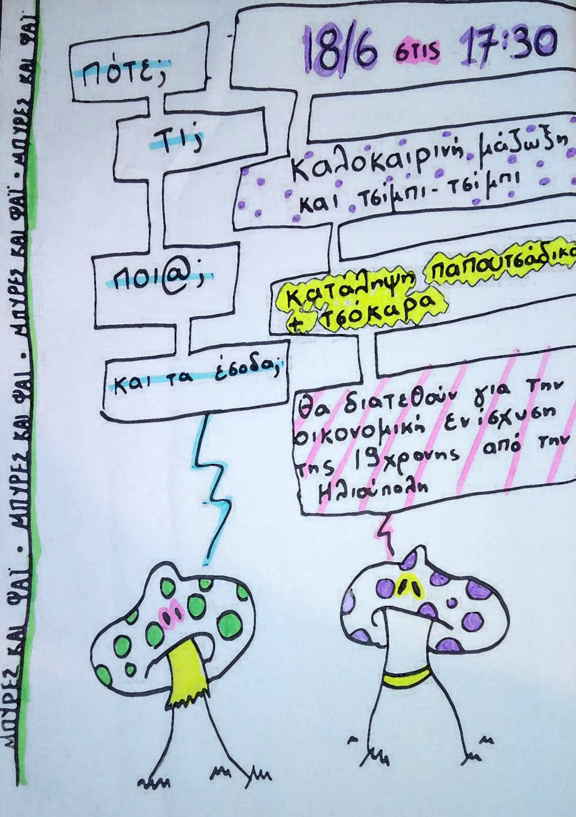 ΠΌΤΕ;
18/6 στις 17:30
Τι;
Καλοκαιρινή μάζωξη
και τσίμπι-τσίμπι
ΠΟΙ@;
κατάληψη παπουτσάδικο
+ τσόκαρα
και τα έσοδα;
Θα διατεθούν για την
οικονομική ενίσχυση
της 19χρονης από την
Ηλιούπολη
ΜΠΥΡΕΣ ΚΑΙ ΦΑΪ · ΜΠΥΡΕΣ ΚΑΙ ΦΑΪ · ΜΠΥΡΕΣ ΚΑΙ ΦΑΪ · ΜΠΥΡΕΣ ΚΑΙ ΦΑΪ · ΜΠΥΡΕΣ ΚΑΙ ΦΑΪ